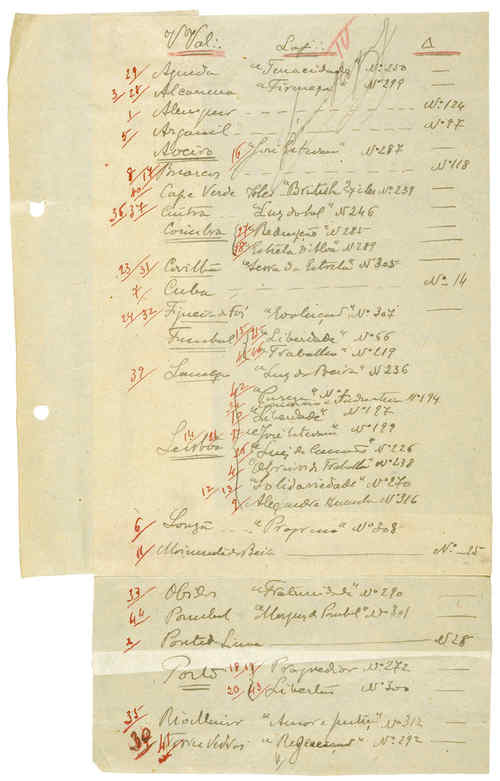 Val: Loj: IV Δ
29/ Agueda "Tenacidade" Nº 250 —
3/ 28/ Alcanena "Firmeza" Nº 299 —
1/ Alenquer - - - - Nº 124
5/ Arganil - - - - Nº 97
Aveiro 16/ "José Estevam" Nº 287
8/ 17/ Buarcos - - - - Nº 118
40/ Cape Verde "British" Nº 239 —
36/ 37/ Cintra "Luz do Sol" Nº 246 —
Coimbra "Redempção" Nº 285 —
18/ "Estrela d'Alva" Nº 289 —
23/ 31/ Covilhã "Serra da Estrela" Nº 305 —
7/ Cuba - - - - Nº 14
24/ 32/ Figueira da Foz "Evolução" Nº 307 —
Funchal "Liberdade" Nº 66
"Trabalho" Nº 219
39/ Lamego "Luz da Beira" Nº 236
Nº 194
"Liberdade" Nº 197
14/ Lisboa "José Estevam" Nº 199
"Luz de Camões" Nº 226
4/ "Obreiros do Trabalho" Nº 238
12/ 13/ "Solidariedade" Nº 270
9/ Alexandre Nº 316
6/ Louzã - - "Progresso" Nº 308 —
11/ Moimenta da Beira — Nº 25
33/ Obidos "Fraternidade" Nº 290 —
44/ Pombal "Marquez de Pombal" Nº 301 —
2/ Ponte de Lima — Nº 28
Porto 18/ 19/ Progredior Nº 272 —
20/ 43/ Libertas Nº 300 —
35/ Rio Maior "Amor e Justiça" Nº 312 —
39 41/ Torres Vedras "Regeneração" Nº 292 —